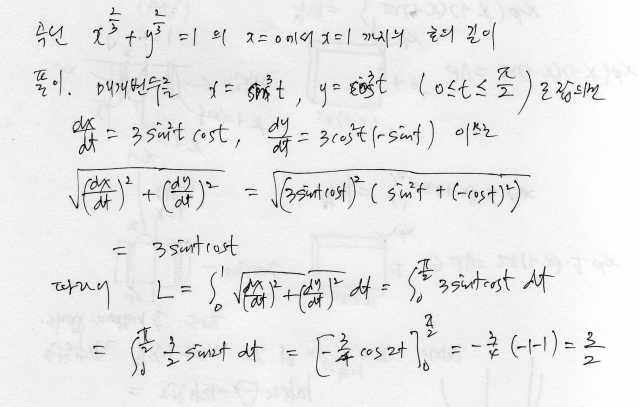 곡선 x^{2/3} + y^{2/3} = 1 의 x=0에서 x=1 까지의 호의 길이
풀이. 매개변수를 x = sin^3 t , y = cos^3 t ( 0≤t≤ π/2 ) 로 잡으면
dx/dt = 3 sin^2 t cos t , dy/dt = 3cos^2 t (-sin t) 이므로
√((dx/dt)^2 + (dy/dt)^2) = √((3 sin t cos t)^2 ( sin^2 t + (-cos t)^2))
= 3 sin t cos t
따라서 L = ∫_0^1 √((dx/dt)^2 + (dy/dt)^2) dt = ∫_0^{π/2} 3 sin t cos t dt
= ∫_0^{π/2} 3/2 sin 2t dt = [ -3/4 cos 2t ]_0^{π/2} = -3/4 (-1-1) = 3/2